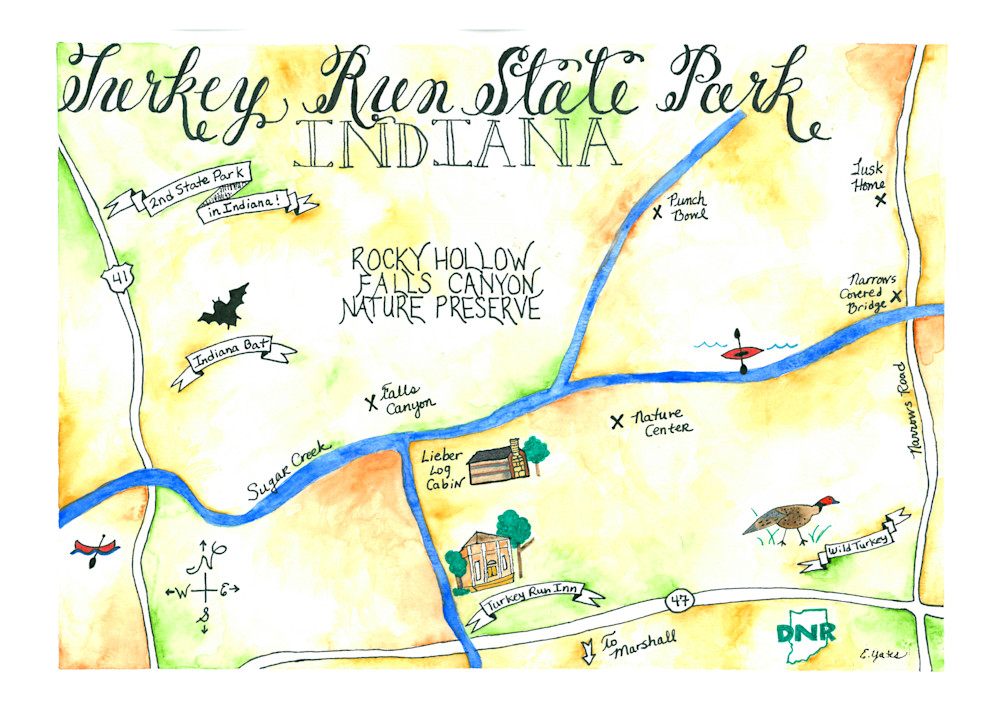 Turkey Run State Park
INDIANA
2nd State Park
in Indiana!
Tusk
Home
Punch
Bowl
ROCKY HOLLOW
FALLS CANYON
NATURE PRESERVE
41
Narrows
Covered
Bridge
Indiana Bat
Falls
Canyon
Nature
Center
Narrows Road
Sugar Creek
Lieber
Log
Cabin
Wild Turkey
N
W E
S
Turkey Run Inn
47
To
Marshall
DNR
E. Yates